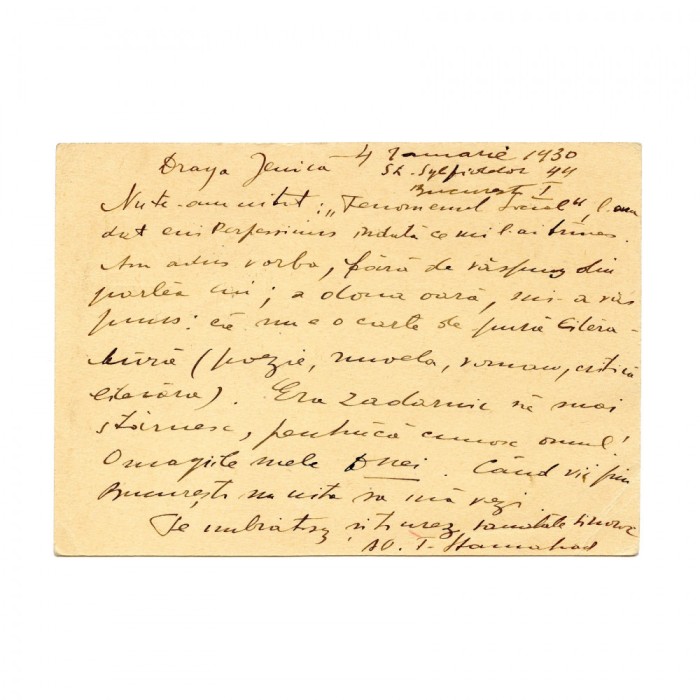 Draga Jenică 4 Ianuarie 1930
St. Sylfidelor 44
București I
Nu te-am uitat: „Fenomenul ", l-am
dat lui Perpessicius îndată ce mi l-ai trimes.
Am adus vorba, fără de răspuns din
partea lui; a doua oară, mi-a răs
puns: că nu e o carte de pură litera-
tură (poezie, nuvela, roman, critică
literară). Era zadarnic să mai
stărnesc, pentrucă cunosc omul!
Omagiile mele Dnei. Când vii prin
București nu uita să mă vezi.
Te îmbrățișez și-ți urez sanatate
Al. T. Stamatiad